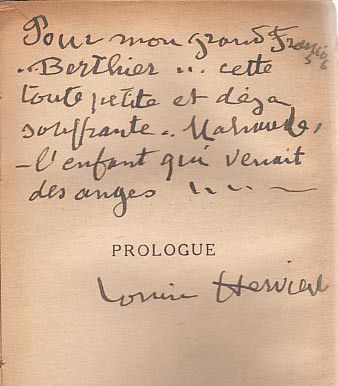 Pour mon grand Francis
.. Berthier ... cette
toute petite et déja
souffrante ..
– l'enfant qui venait
des anges
PROLOGUE
Louise Hervieu